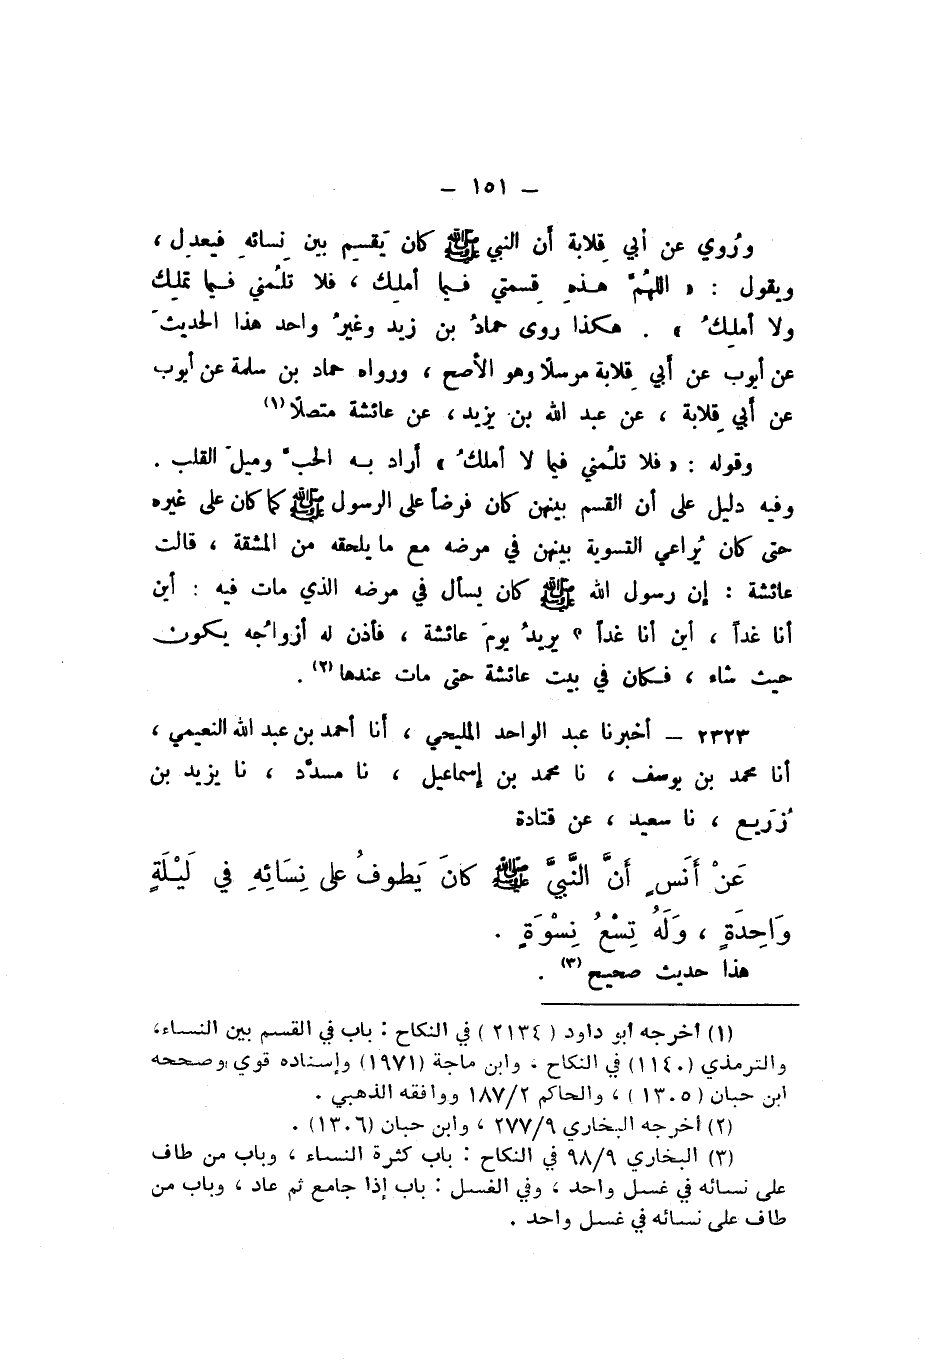 – ١٥١ –
ورُوي عن أبي قِلابة أن النبي ﷺ كان يَقسِم بين نِسائهِ فيعدِل ،
ويقول : « اللهُمَّ هـذهِ قِسمتي فـيما أملِك ، فلا تلُمني فـيما تملِك
ولا أملِكُ » . هكذا روى حمادُ بن زيد وغيرُ واحد هذا الحديثَ
عن أيوب عن أبي قِلابة مرسلًا وهو الأصح ، ورواه حماد بن سلمة عن أيوب
عن أبي قِلابة ، عن عبد الله بن يزيد ، عن عائشة متصلًا (١)
وقوله : « فلا تلُمني فيما لا أملكُ » أراد بـه الحبَّ وميلَ القلب .
وفيه دليل على أن القسم بينهن كان فرضاً على الرسول ﷺ كما كان على غيره
حتى كان يُراعي التسوية بينهن في مرضه مع ما يلحقه من المشقة ، قالت
عائشة : إن رسول الله ﷺ كان يسأل في مرضه الذي مات فيه : أين
أنا غداً ، أين أنا غداً ؟ يريدُ يومَ عائشة ، فأذن له أزواجُه يكون
حيث شاء ، فكان في بيت عائشة حتى مات عندها (٢) .
٢٣٢٣ – أخبرنا عبد الواحد المليحي ، أنا أحمد بن عبد الله النعيمي ،
أنا محمد بن يوسف ، نا محمد بن إسماعيل ، نا مسدَّد ، نا يزيد بن
زُرَيع ، نا سعيد ، عن قتادة
عَنْ أَنَسٍ أَنَّ النَّبِيَّ ﷺ كَانَ يَطوفُ على نِسَائِهِ في لَيْلَةٍ
وَاحِدَةٍ ، وَلَهُ تِسْعُ نِسْوَةٍ .
هذا حديث صحيح (٣) .
(١) أخرجه أبو داود ( ٢١٣٤ ) في النكاح : باب في القسم بين النساء،
والترمذي (١١٤٠) في النكاح ، وابن ماجة (١٩٧١) وإسناده قوي وصححه
ابن حبان ( ١٣٠٥ ) ، والحاكم ١٨٧/٢ ووافقه الذهبي .
(٢) أخرجه البخاري ٢٧٧/٩ ، وابن حبان (١٣٠٦) .
(٣) البخاري ٩٨/٩ في النكاح : باب كثرة النساء ، وباب من طاف
على نسائه في غسل واحد ، وفي الغسل : باب إذا جامع ثم عاد ، وباب من
طاف على نسائه في غسل واحد .